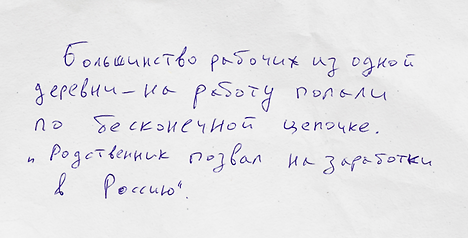 Большинство рабочих из одной
деревни – на работу попали
по бесконечной цепочке.
„Родственник позвал на заработки
в Россию“.